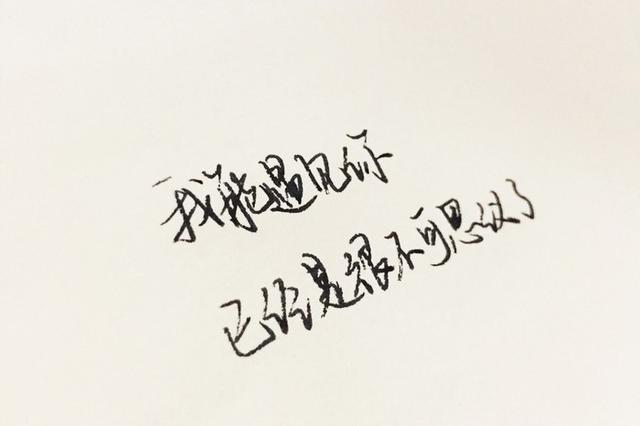 我能遇见你
已经是很不可思议了